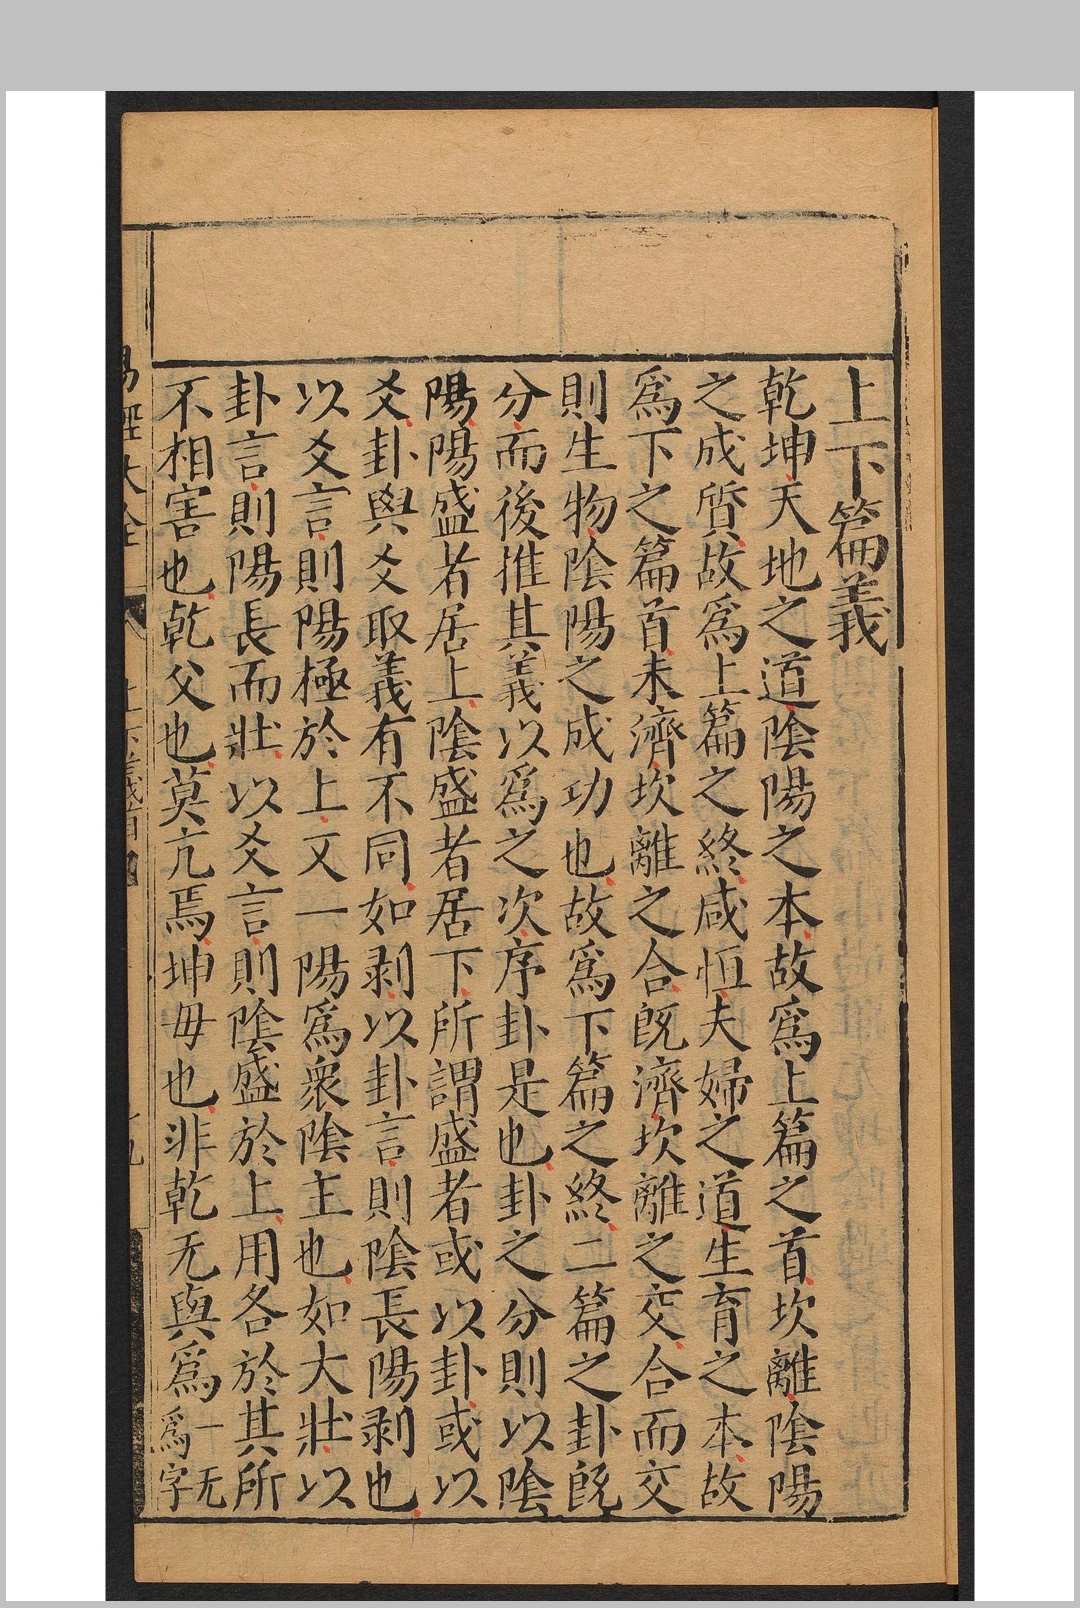 上下篇義
乾坤天地之道陰陽之本故爲上篇之首坎離陰陽
之成質故爲上篇之終咸恒夫婦之道生育之本故
爲下之篇首未濟坎離之合旣濟坎離之交合而交
則生物陰陽之成功也故爲下篇之終二篇之卦旣
分而後推其義以爲之次序卦是也卦之分則以陰
陽陽盛者居上陰盛者居下所謂盛者或以卦或以
爻卦與爻取義有不同如剥以卦言則陰長陽剥也
以爻言則陽極於上又一陽爲衆陰主也如大壯以
卦言則陽長而壯以爻言則陰盛於上用各於其所
不相害也乾父也莫亢焉坤毋也非乾无與爲一无
爲字
易經大全
上下篇義